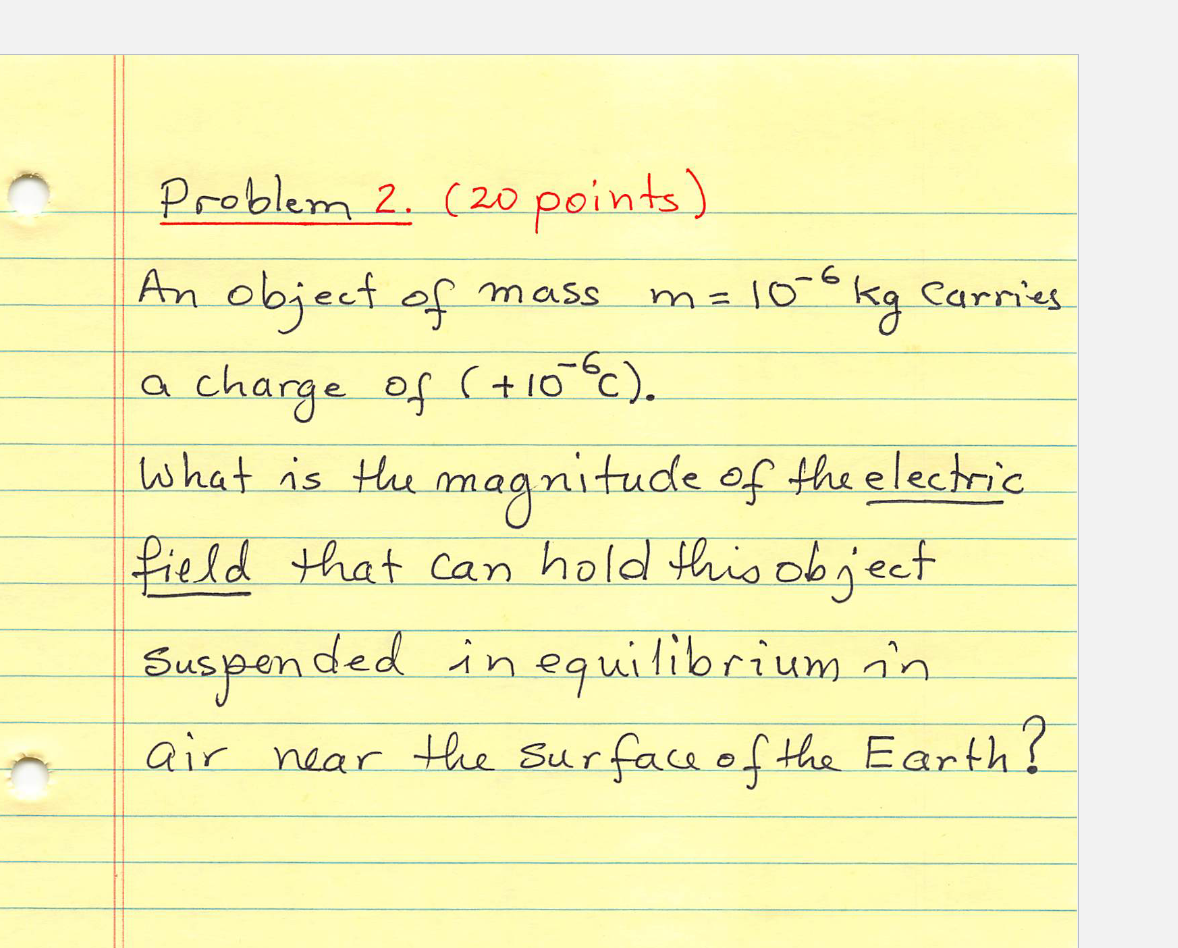 Problem 2. (20 points)
An object of mass m = 10⁻⁶ kg Carries
a charge of (+10⁻⁶C).
What is the magnitude of the electric
field that can hold this object
suspended in equilibrium in
air near the surface of the Earth?